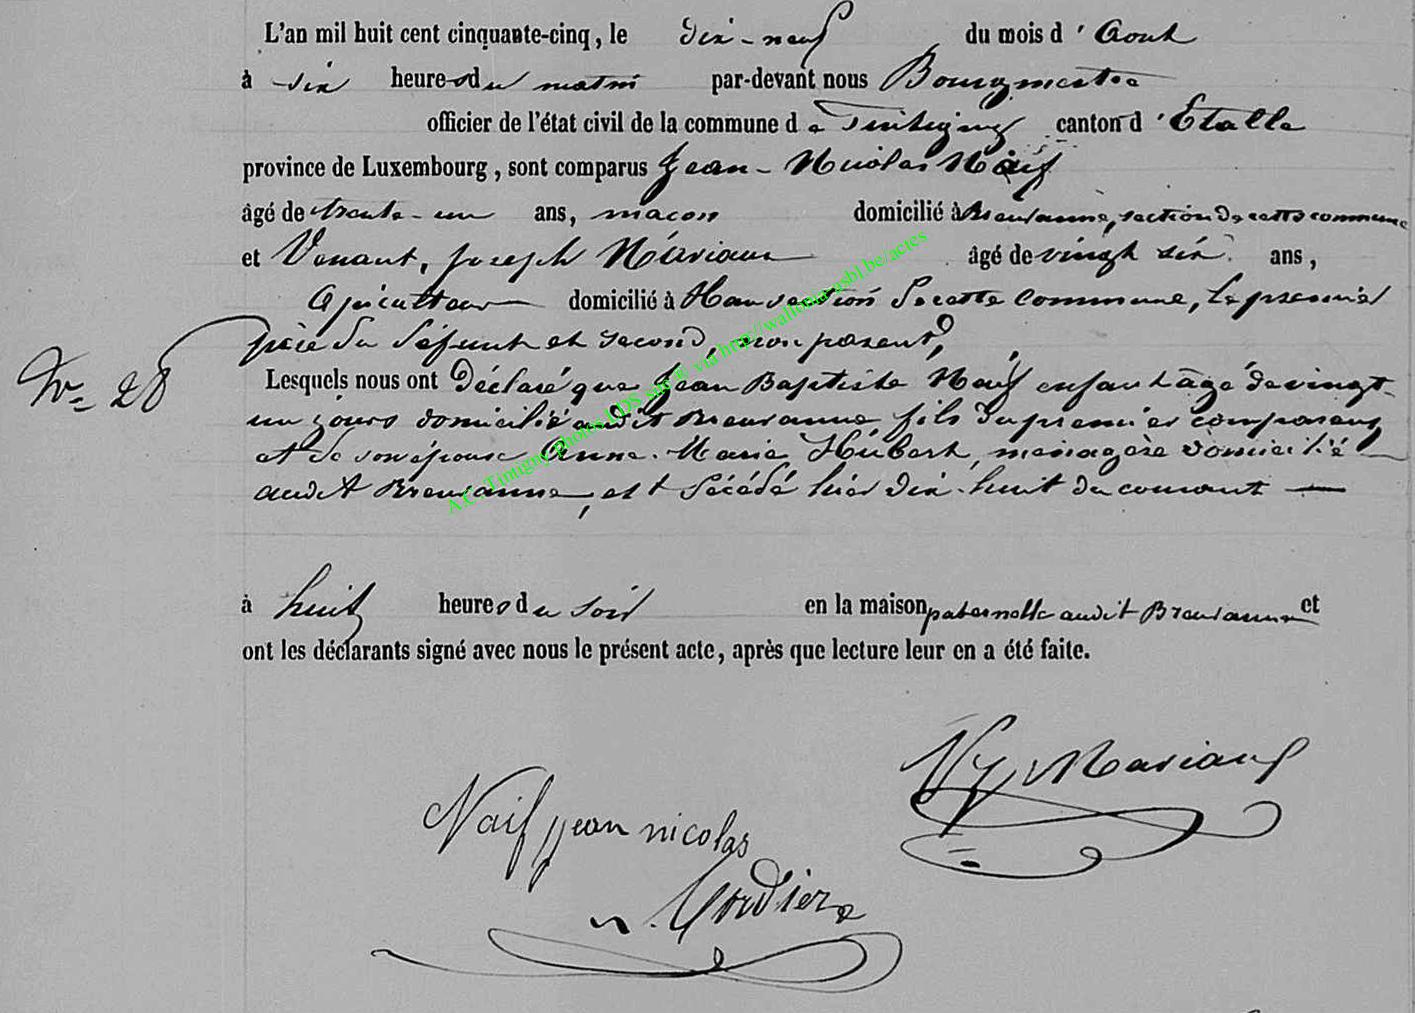 L'an mil huit cent cinquante-cinq, le dix-neuf du mois d'Aout
à six heures du matin par-devant nous Bourgmestre
officier de l'état civil de la commune de Tintigny canton d'Etalle
province de Luxembourg, sont comparus Jean-Nicolas Naif
âgé de trente-un ans, macon domicilié à Breuvanne, section de cette commune
et Venant, Joseph Mariaux âgé de vingt six ans,
domicilié à Han section de cette commune, le premier
père du défunt et second, non parent,
N° 28
Lesquels nous ont déclaré que Jean Baptiste Naif enfant âgé de vingt-
un jours domicilié audit Breuvanne, fils du premier comparant
et de son épouse Anne-Marie Hubert, ménagère domicilié
audit Breuvanne, est décédé hier dix-huit du courant —
à huit heures du soir en la maison paternelle audit Breuvanne et
ont les déclarants signé avec nous le présent acte, après que lecture leur en a été faite.
VJ Mariaux
Naif jean nicolas
Cordier
A.C. Tintigny photos LDS via http://wallonia-asbl.be/actes